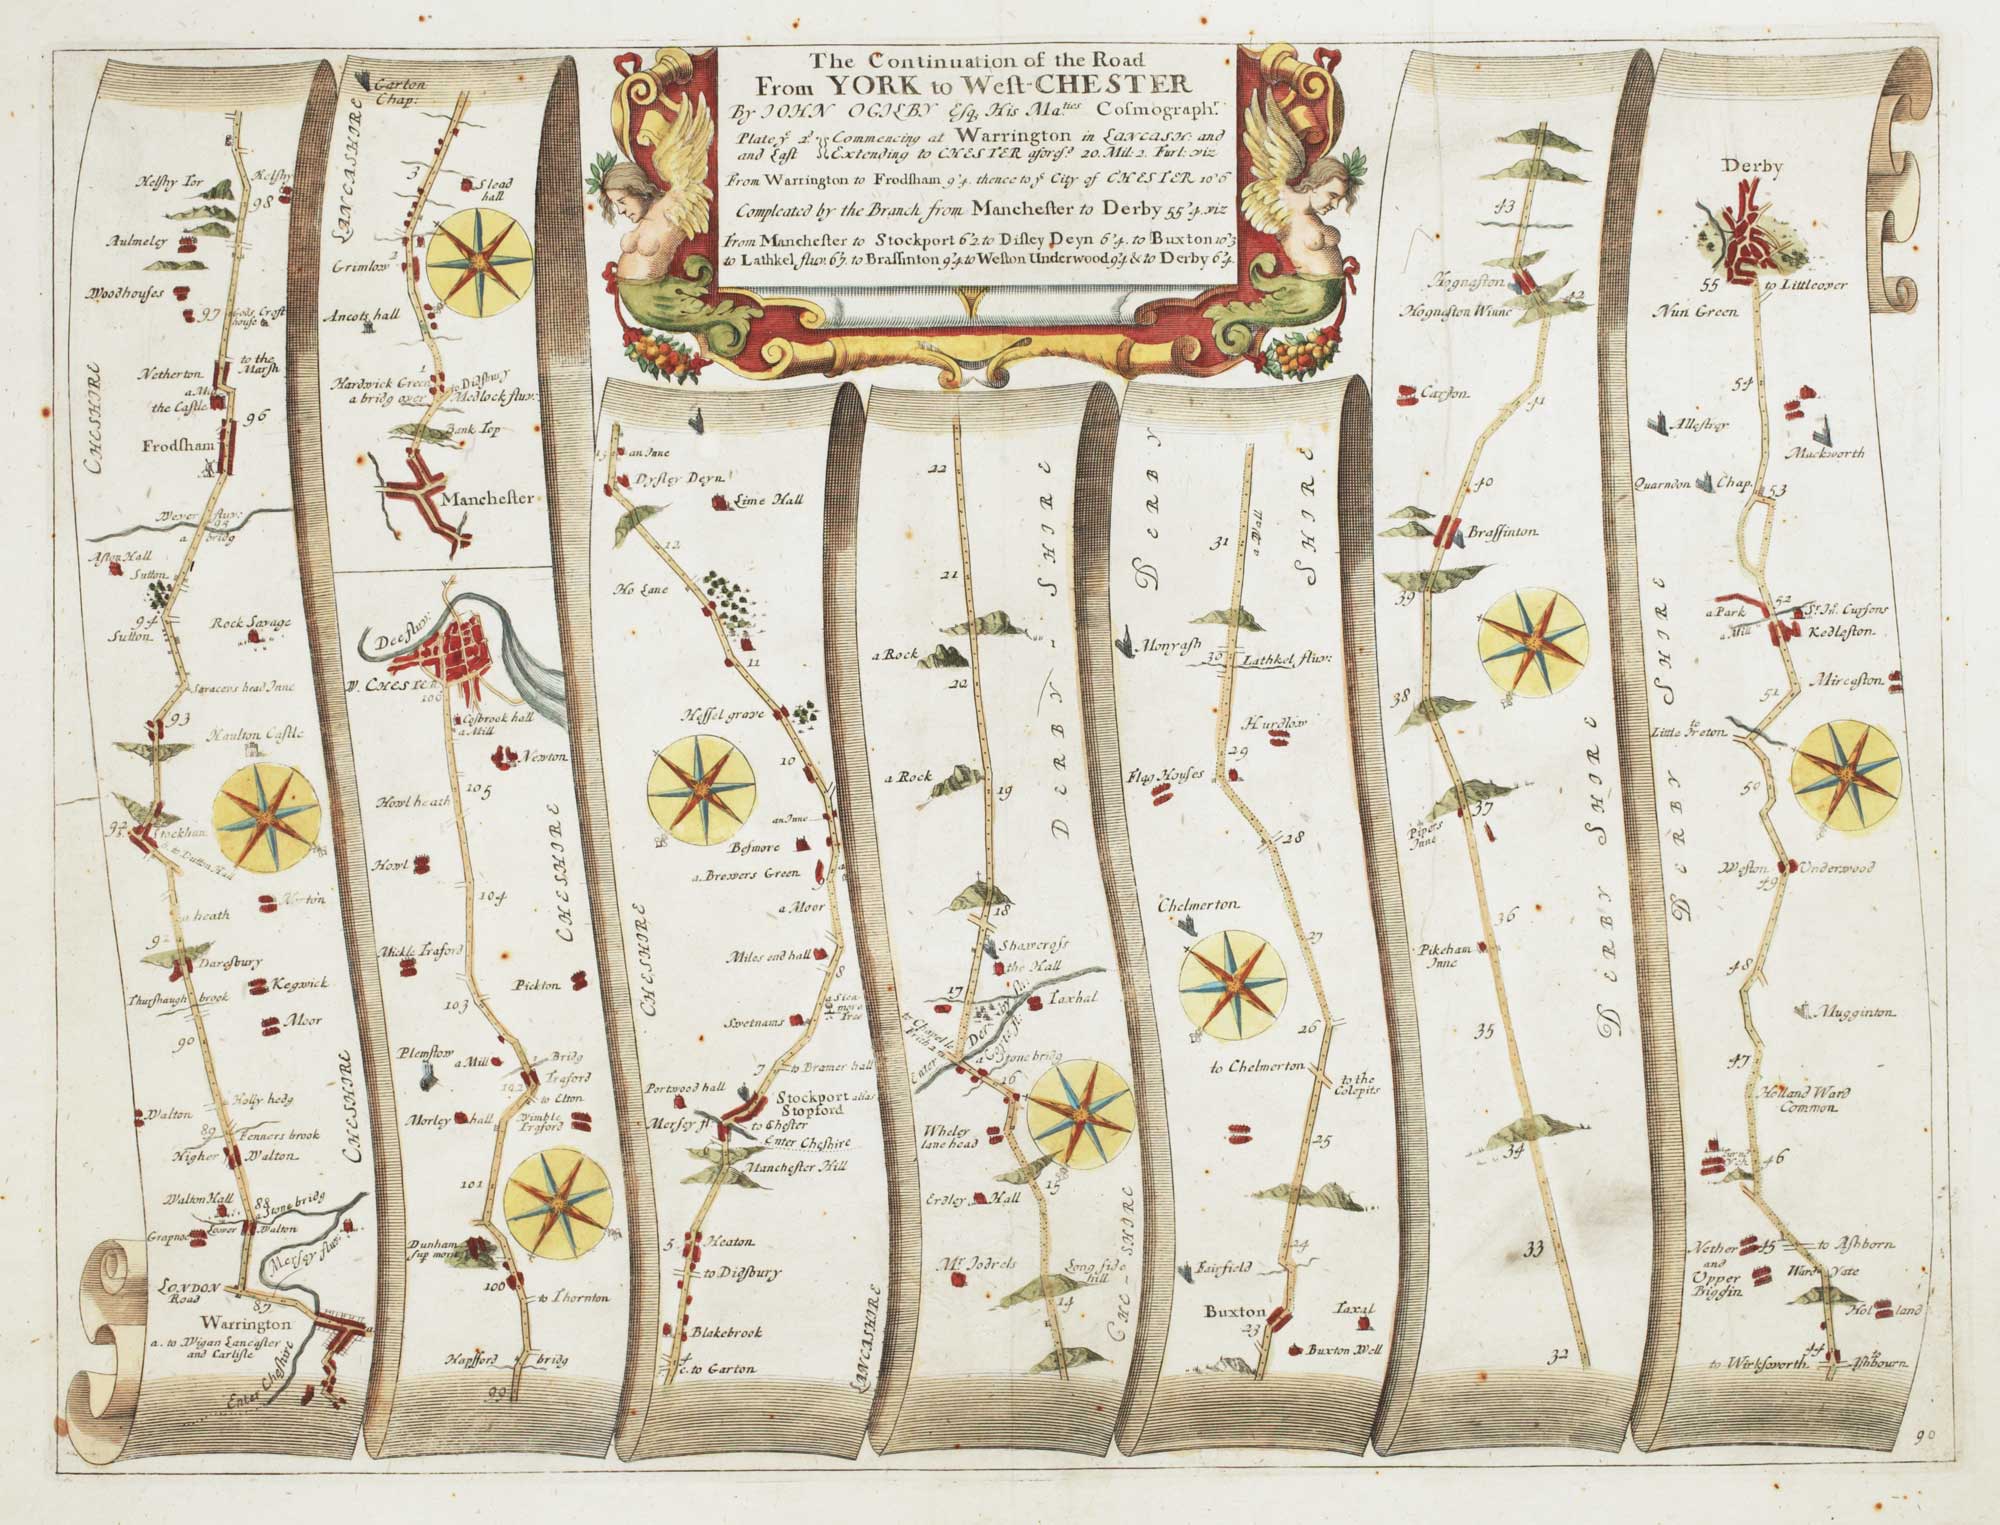 The Continuation of the Road
From YORK to West-CHESTER
By IOHN OGILBY Esq. His Ma.ties Cosmograph.r
Plate y.e 2.d Commencing at Warrington in LANCASH: and
and Last Extending to CHESTER afores.d 20. Mil: 2. Furl: viz
From Warrington to Frodsham 9'4. thence to y.e City of CHESTER 10'6
Compleated by the Branch from Manchester to Derby 55'4. viz
From Manchester to Stockport 6'2. to Disley Deyn 6'4. to Buxton 10'3
to Lathkel fluv. 6'7. to Brassinton 9'4. to Weston Underwood 9'4 & to Derby 6'4.
Helsby Tor
Helsby
98
Aulmeley
Woodhouses
97
Gods Croft
house
to the
Marsh
Netherton
a Mill
the Castle
96
CHESHIRE
Frodsham
Wever fluv:
95
a bridg
Aston Hall
Sutton
94
Sutton
Rock Savage
Saracens head Inne
93
Haulton Castle
Stockham
to Dutton Hall
Norton
a heath
92
Daresbury
Kegwick
Thurshaugh brook
Moor
90
Holly hedg
Walton
89
Fenners brook
Higher Walton
CHESHIRE
Walton Hall
88
a Stone bridg
Lower Walton
Grapnoe
Mersey fluv:
LONDON
Road
87
Warrington
a. to Wigan Lancaster
and Carlisle
Enter Cheshire
Garton
Chap:
LANCASHIRE
3
Slead
hall
Grimlow
2
Ancots hall
1
Hardwick Green
to Didsbury
a bridg over Medlock fluv:
Bank Top
Manchester
Dee fluv:
W. CHESTER
106
Cosbrook hall
a Mill
Newton
105
Howl heath
CHESHIRE
Howl
104
Mickle Traford
Pickton
103
Plemstow
a Mill
Bridg
Traford
102
to Elton
Morley hall
Wimble
Traford
101
Dunham
sup mont
100
to Thornton
Hapsford bridg
99
an Inne
Dysley Deyn
Lime Hall
12
Ho Lane
11
Hessel grave
10
an Inne
Besmore
a Brewers Green
9
a Moor
CHESHIRE
Miles end hall
8
a Sica
more
Tree
Swetnams
7
to Bramer hall
Portwood hall
Stockport alias
Stopford
Mersey fl.
to Chester
Enter Cheshire
Manchester Hill
5
Heaton
to Didsbury
Blakebrook
4
to Garton
LANCASHIRE
22
21
DERBY-SHIRE
a Rock
20
a Rock
19
18
Shawcross
the Hall
17
Taxhal
to Chapelle
Frith
Enter Derbysh:
a Stone bridg
16
Wheley
lane head
15
Erdley Hall
CHE-SHIRE
Mr. Jodrels
Long side
hill
14
DERBY SHIRE
31
a Wall
Monyash
30
Lathkel fluv:
Hurdlow
29
Flag Houses
28
Chelmerton
27
26
to Chelmerton
to the
Colepits
25
24
Fairfield
Buxton
23
Taxal
Buxton Well
43
Hognaston
42
Hognaston Winne
Carson
41
40
Brassinton
39
38
37
Pipers
Inne
DERBY SHIRE
36
Pikeham
Inne
35
34
33
32
Derby
55
to Littleover
Nun Green
54
Allestrey
Mackworth
Quarndon Chap.
53
52
a Park
a Mill
Sr. Jn. Cursons
Kedleston
51
Miregston
DERBY SHIRE
to
Little Ireton
50
Weston Underwood
49
48
Mugginton
47
Holland Ward
Common
46
Nether
and
Upper
Biggin
45
to Ashborn
Ward Yate
Holland
44
to Wirksworth
to
Ashbourn
90